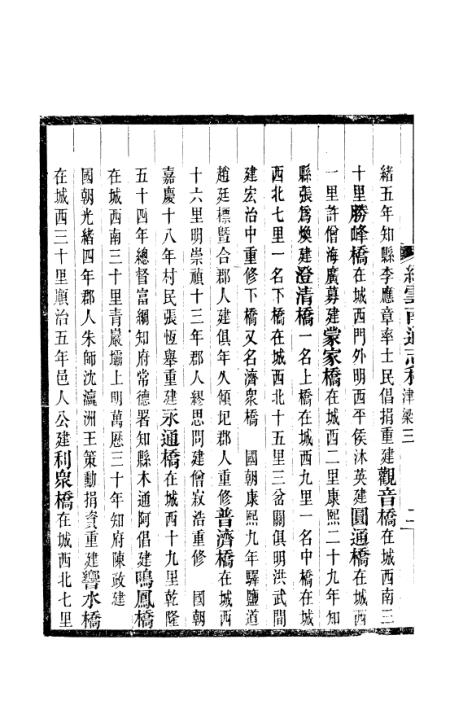 續雲南通志稿 津梁三 二
緒五年知縣李應章率士民倡捐重建觀音橋在城西南三
十里勝峰橋在城西門外明西平侯沐英建圓通橋在城西
一里許僧海廣募建蒙家橋在城西二里康熙二十九年知
縣張爲煥建澄清橋一名上橋在城西九里一名中橋在城
西北七里一名下橋在城西北十五里三岔關俱明洪武間
建宏治中重修下橋又名濟衆橋 國朝康熙九年驛鹽道
趙廷標暨合郡人建俱年久傾圮郡人重修普濟橋在城西
十六里明崇禎十三年郡人繆思問建僧寂浩重修 國朝
嘉慶十八年村民張恆舉重建永通橋在城西十九里乾隆
五十四年總督富綱知府常德署知縣木通阿倡建鳴鳳橋
在城西南三十里青巖壩上明萬歷三十年知府陳政建
國朝光緒四年郡人朱師沈瀛洲王策勳捐資重建響水橋
在城西三十里順治五年邑人公建利衆橋在城西北七里